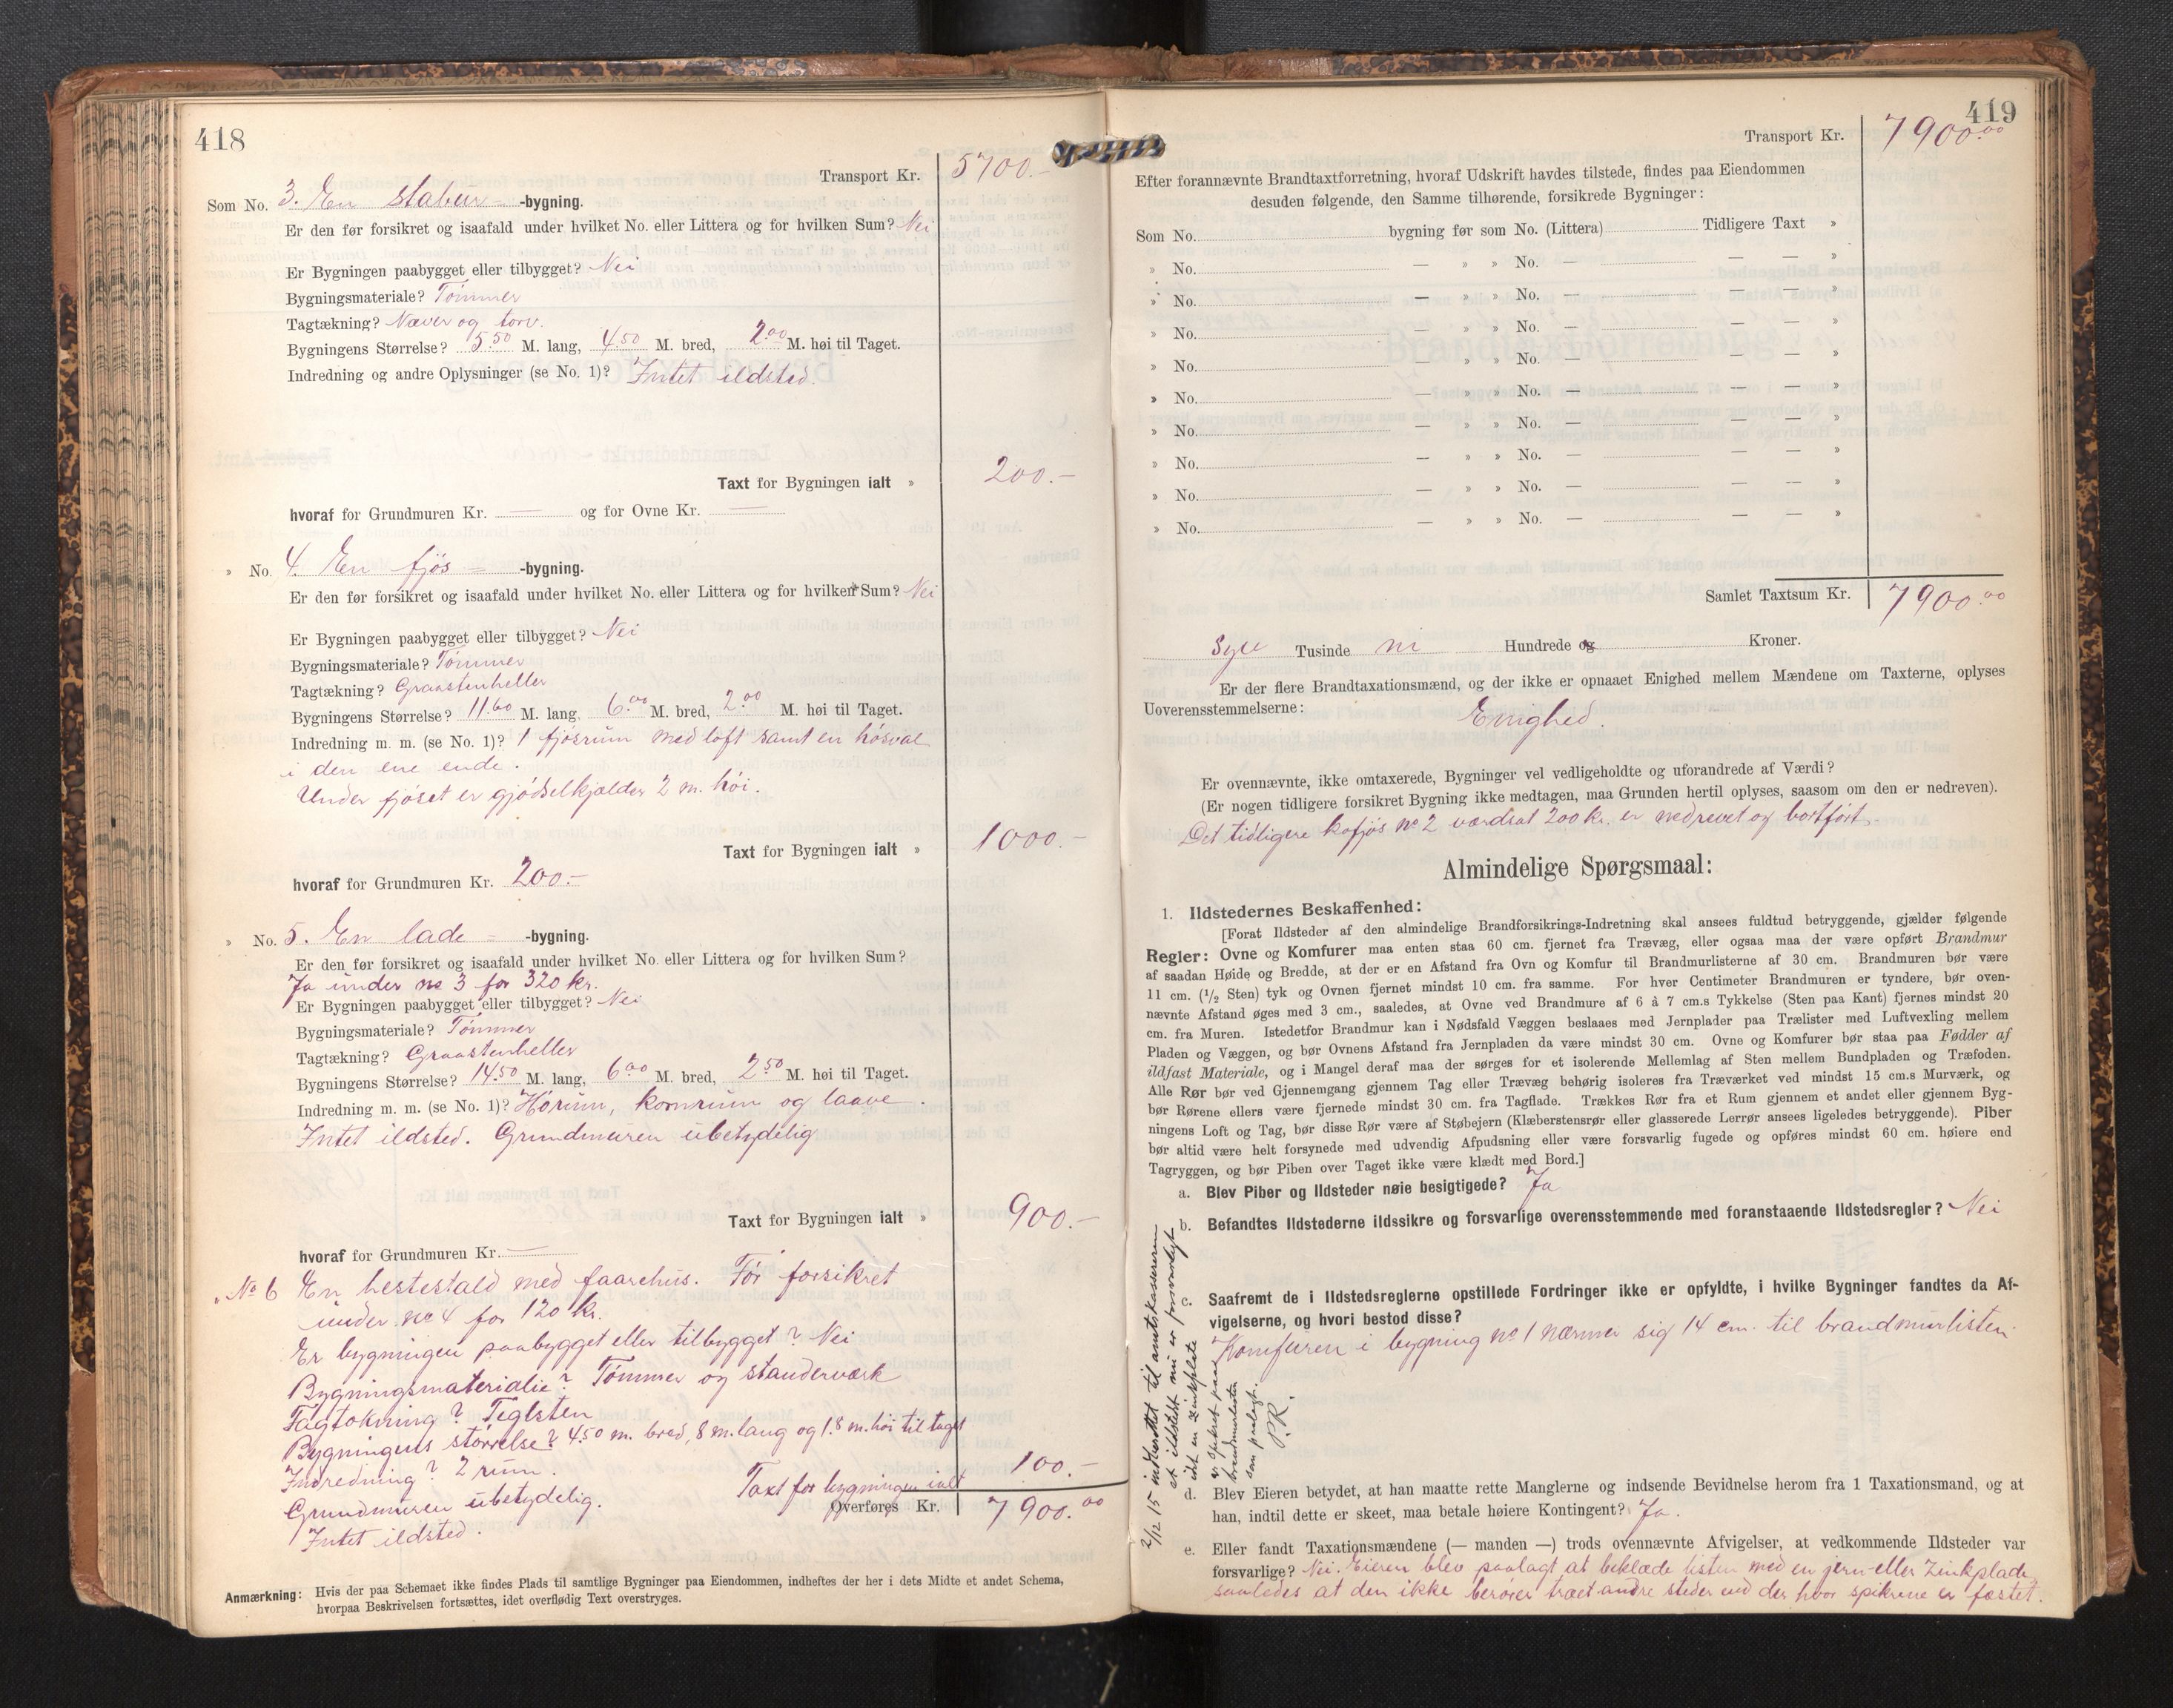 418
Transport Kr. 5700.-
Som No. 3. En stabur -bygning.
Er den før forsikret og isaafald under hvilket No. eller Littera og for hvilken Sum? Nei
Er Bygningen paabygget eller tilbygget? Nei
Bygningsmateriale? Tømmer
Tagtækning? Næver og torv.
Bygningens Størrelse? 5.50 M. lang, 4.50 M. bred, 2.00 M. høi til Taget.
Indredning og andre Oplysninger (se No. 1)? Intet ildsted.
Taxt for Bygningen ialt » 200.-
hvoraf for Grundmuren Kr. — og for Ovne Kr. —
» No. 4. En fjøs -bygning.
Er den før forsikret og isaafald under hvilket No. eller Littera og for hvilken Sum? Nei
Er Bygningen paabygget eller tilbygget? Nei
Bygningsmateriale? Tømmer
Tagtækning? Graastenheller
Bygningens Størrelse? 11.60 M. lang, 6.00 M. bred, 2.00 M. høi til Taget.
Indredning m. m. (se No. 1)? 1 fjøsrum med loft samt en høsval
i den ene ende.
Under fjøset er gjødselkjælder 2 m. høi.
Taxt for Bygningen ialt » 1000.-
hvoraf for Grundmuren Kr. 200.-
» No. 5. En lade -bygning.
Er den før forsikret og isaafald under hvilket No. eller Littera og for hvilken Sum?
Ja under no 3 for 320 kr.
Er Bygningen paabygget eller tilbygget? Nei
Bygningsmateriale? Tømmer
Tagtækning? Graastenheller
Bygningens Størrelse? 14.50 M. lang, 6.00 M. bred, 2.50 M. høi til Taget.
Indredning m. m. (se No. 1)? Hørum, kornrum og laave.
Intet ildsted. Grundmuren ubetydelig
Taxt for Bygningen ialt » 900.-
hvoraf for Grundmuren Kr. —
» No 6 En hestestald med faarehus. Før forsikret
under no 4 for 120 kr.
Er bygningen paabygget eller tilbygget? Nei
Bygningsmaterialie? Tømmer og standerværk
Tagtækning? Teglsten
Bygningens størrelse? 4.50 m. bred, 8 m. lang og 1.8 m. høi til taget
Indredning? 2 rum.
Taxt for bygningen ialt 100.-
Grundmuren ubetydelig.
Overføres Kr. 7900.00
Intet ildsted.
Anmærkning: Hvis der paa Schemaet ikke findes Plads til samtlige Bygninger paa Eiendommen, indheftes der her i dets Midte et andet Schema,
hvorpaa Beskrivelsen fortsættes, idet overflødig Text overstryges.
419
Transport Kr. 7900.00
Efter forannævnte Brandtaxtforretning, hvoraf Udskrift havdes tilstede, findes paa Eiendommen
desuden følgende, den Samme tilhørende, forsikrede Bygninger:
Som No. bygning før som No. (Littera) Tidligere Taxt »
» No. — » » No. — — — »
» No. — » » No. — — — »
» No. — » » No. — — — »
» No. — » » No. — — — »
» No. — » » No. — — — »
» No. — » » No. — — — »
» No. — » » No. — — — »
» No. — » » No. — — — »
» No. — » » No. — — — »
Samlet Taxtsum Kr. 7900.00
Syv Tusinde ni Hundrede og Kroner.
Er der flere Brandtaxationsmænd, og der ikke er opnaaet Enighed mellem Mændene om Taxterne, oplyses
Uoverensstemmelserne: Enighed.
Er ovennævnte, ikke omtaxerede, Bygninger vel vedligeholdte og uforandrede af Værdi?
(Er nogen tidligere forsikret Bygning ikke medtagen, maa Grunden hertil oplyses, saasom om den er nedreven).
Det tidligere kofjøs no 2 værdsat 200 kr. er nedrevet og bortført.-
Almindelige Spørgsmaal:
1. Ildstedernes Beskaffenhed:
[Forat Ildsteder af den almindelige Brandforsikrings-Indretning skal ansees fuldtud betryggende, gjælder følgende
Regler: Ovne og Komfurer maa enten staa 60 cm. fjernet fra Trævæg, eller ogsaa maa der være opført Brandmur
af saadan Høide og Bredde, at der er en Afstand fra Ovn og Komfur til Brandmurlisterne af 30 cm. Brandmuren bør være
11 cm. (1/2 Sten) tyk og Ovnen fjernet mindst 10 cm. fra samme. For hver Centimeter Brandmuren er tyndere, bør oven-
nævnte Afstand øges med 3 cm., saaledes, at Ovne ved Brandmure af 6 à 7 cm.s Tykkelse (Sten paa Kant) fjernes mindst 20
cm. fra Muren. Istedetfor Brandmur kan i Nødsfald Væggen beslaaes med Jernplader paa Trælister med Luftvexling mellem
Pladen og Væggen, og bør Ovnens Afstand fra Jernpladen da være mindst 30 cm. Ovne og Komfurer bør staa paa Fødder af
ildfast Materiale, og i Mangel deraf maa der sørges for et isolerende Mellemlag af Sten mellem Bundpladen og Træfoden.
Alle Rør bør ved Gjennemgang gjennem Tag eller Trævæg behørig isoleres fra Træværket ved mindst 15 cm.s Murværk, og
bør Rørene ellers være fjernede mindst 30 cm. fra Tagflade. Trækkes Rør fra et Rum gjennem et andet eller gjennem Byg-
ningens Loft og Tag, bør disse Rør være af Støbejern (Klæberstensrør eller glasserede Lerrør ansees ligeledes betryggende). Piber
bør altid være helt forsynede med udvendig Afpudsning eller være forsvarlig fugede og opføres mindst 60 cm. høiere end
Tagryggen, og bør Piben over Taget ikke være klædt med Bord.]
a. Blev Piber og Ildsteder nøie besigtigede? Ja
b. Befandtes Ildstederne ildssikre og forsvarlige overensstemmende med foranstaaende Ildstedsregler? Nei
c. Saafremt de i Ildstedsreglerne opstillede Fordringer ikke er opfyldte, i hvilke Bygninger fandtes da Af-
vigelserne, og hvori bestod disse?
Komfuren i bygning no 1 nærmer sig 14 cm. til brandmurlisten.
d. Blev Eieren betydet, at han maatte rette Manglerne og indsende Bevidnelse herom fra 1 Taxationsmand, og at
han, indtil dette er skeet, maa betale høiere Kontingent? Ja.
e. Eller fandt Taxationsmændene (— manden —) trods ovennævnte Afvigelser, at vedkommende Ildsteder var
forsvarlige? Nei. Eieren blev paalagt at beklæde listen med en jern- eller Zinkplade
saaledes at den ikke berører træet andre steder end der hvor spikrene er fæstet.
2/12 15 indberettet til amtskassereren
at ildstedet nu er forsvarligt
idet en zinkplate
er spikret paa
brandmurlisten
som paalagt.
P.R.